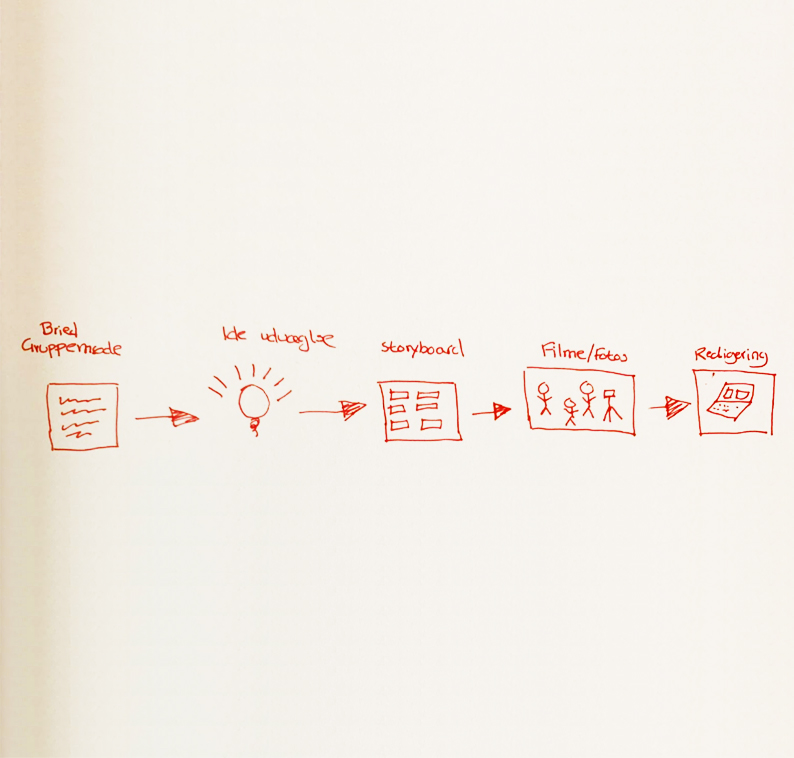 Brief
Gruppemøde
Ide udvælge
storyboard
Filme/fotos
Redigering